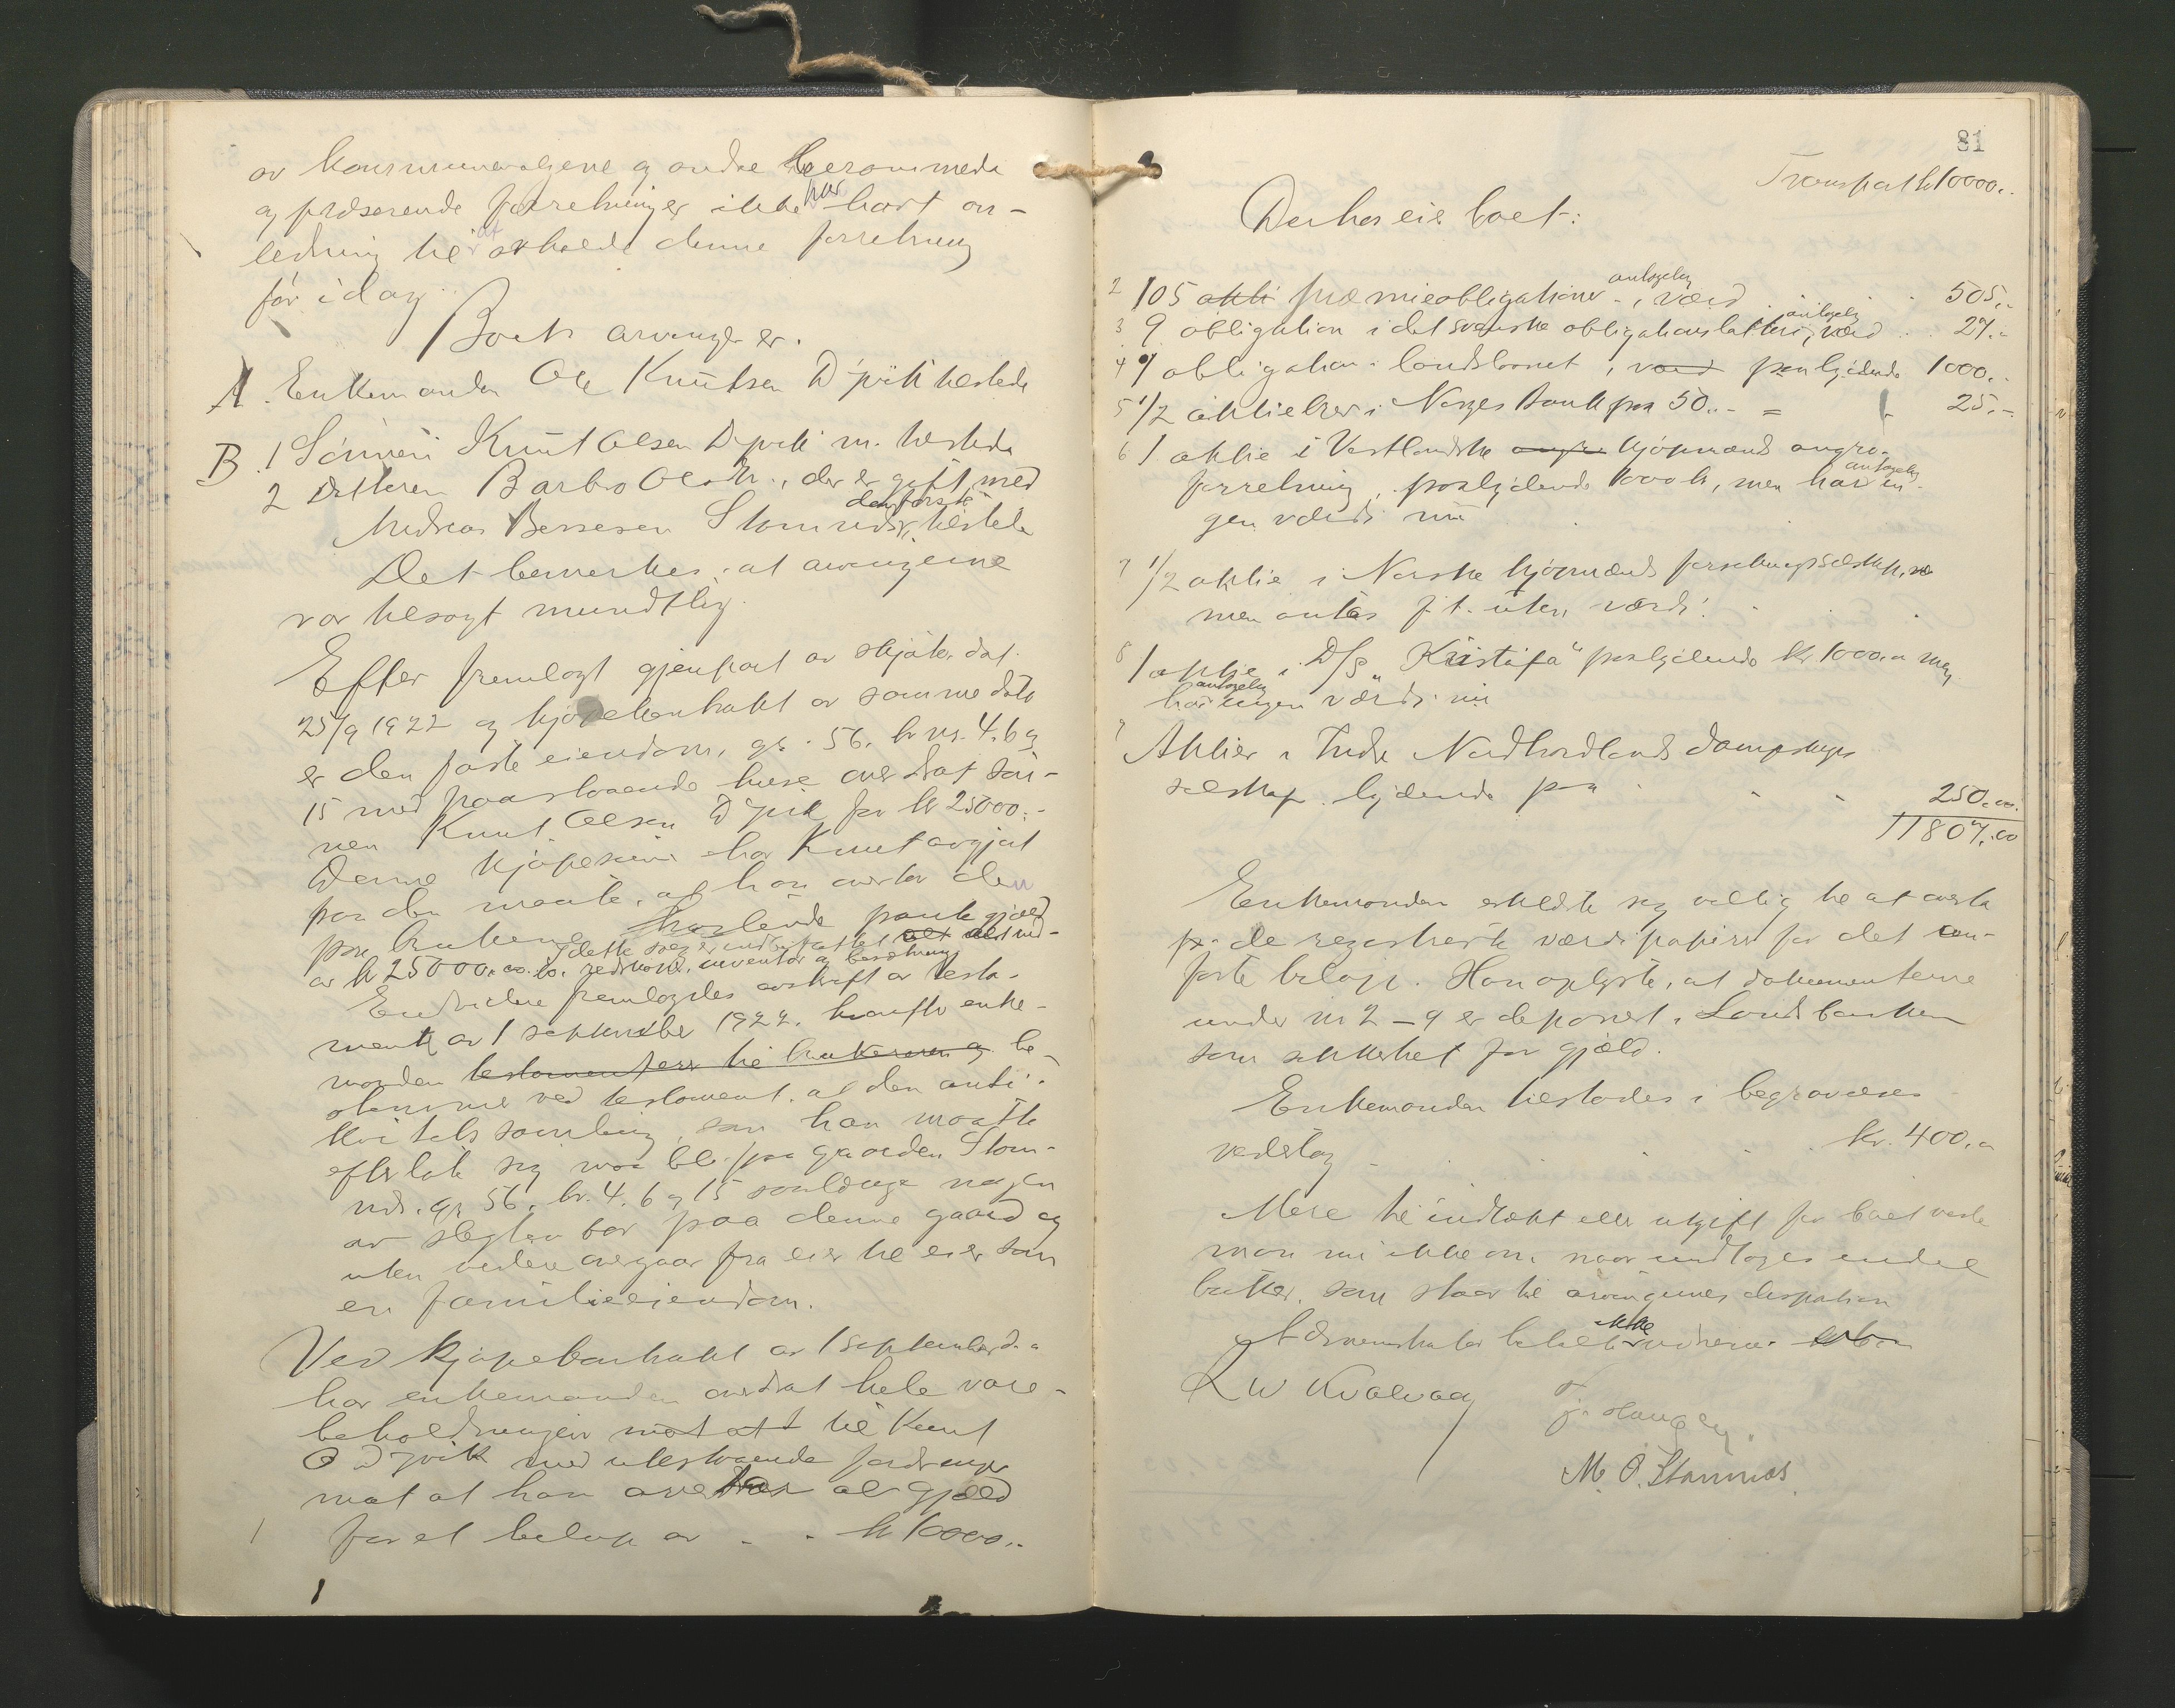 av kommunevalgene og andre
og presserende forretninger ikke har hat an-
ledning til at avholde denne forretning
før idag.
Boets arvinger er.
A. Enkemanden Ole Knutsen Dyvik tilstede
B. 1 Sønnen Knut Olsen Dyvik m. tilstede
2 Datteren Barbro Olsdtr., der er gift med
Andreas Bernesen Stamnes, den første tilstede
Det bemerkes, at arvingerne
var tilsagt mundtlig.
Efter fremlagt gjenpart av skjøte, dat.
25/9 1922 og kjøpekontrakt av samme dato
er den faste eiendom, gr. 56. br nr. 4. 6 og
15 med paastaaende huse overdrat søn-
nen Knut Olsen Dyvik for kr 25000.-
Denne kjøpesum har Knut avgjort
paa den maate, at han overtar den
paa bruket heftende pantegjæld
av kr 25000.00.
I dette salg er indbefattet alt ind-
bo, redskaper, inventar og besætning
Endvidere fremlagdes avskrift av testa-
ment av 1 september 1922. hvorefter enke-
manden testamenterer til brukeren og be-
stemmer ved testament, at den anti-
kvitetssamling, som han maatte
efterlate sig maa bli paa gaarden Stam-
nes. gr. 56, br. 4, 6 og 15 saalænge nogen
av slegten bor paa denne gaard og
uten videre overgaar fra eier til eier som
en familieeiendom.
Ved kjøpekontrakt av 1 september d.a
har enkemanden overdrat hele vare-
beholdningen mot at til Knut
O Dyvik med utestaaende fordringer
mot at han overtar al gjæld
1 for et beløp av - - kr 10000..
81
Transport kr 10000..
Derhos eier boet:
2 105 aktie præmieobligationer, antagelig værd 505.-
3 9 obligation i det svenske obligationslotteri, antagelig værd 27.-
4 1 obligation i landslaanet, værd paalydende 1000.-
5 1/2 aktiebrev i Norges Bank paa 50.- = 25.-
6 1 aktie i Vestlandske kjøpmænds engro-
forretning, paalydende 1000 kr, men har antagelig in-
gen værdi nu
7 1/2 aktie i Norske kjøpmænds forsikringsselskap,
men antas f. t. uten værdi.
8 1 aktie i D/S "Kristifa" paalydende kr. 1000.- men
har antagelig ingen værdi nu
9 Aktier i Indre Nordhordlands dampskips
selskap lydende paa 250.00.
11807.00
Enkemanden erklærte sig villig til at overta
de registrerte værdipapirer for det an-
førte beløp. Han oplyste, at dokumenterne
under nr 2-9 er deponert i Landsbanken
som sikkerhet for gjæld.
Enkemanden tilstodes i begravelses
vederlag kr. 400.-
Mere til indtækt eller utgift for boet visste
man nu ikke om, naar undtages endel
bøker, som staar til arvingernes disposition
ikke
L W Kvalvaag
J. Haugly.
M. O. Stamnes.